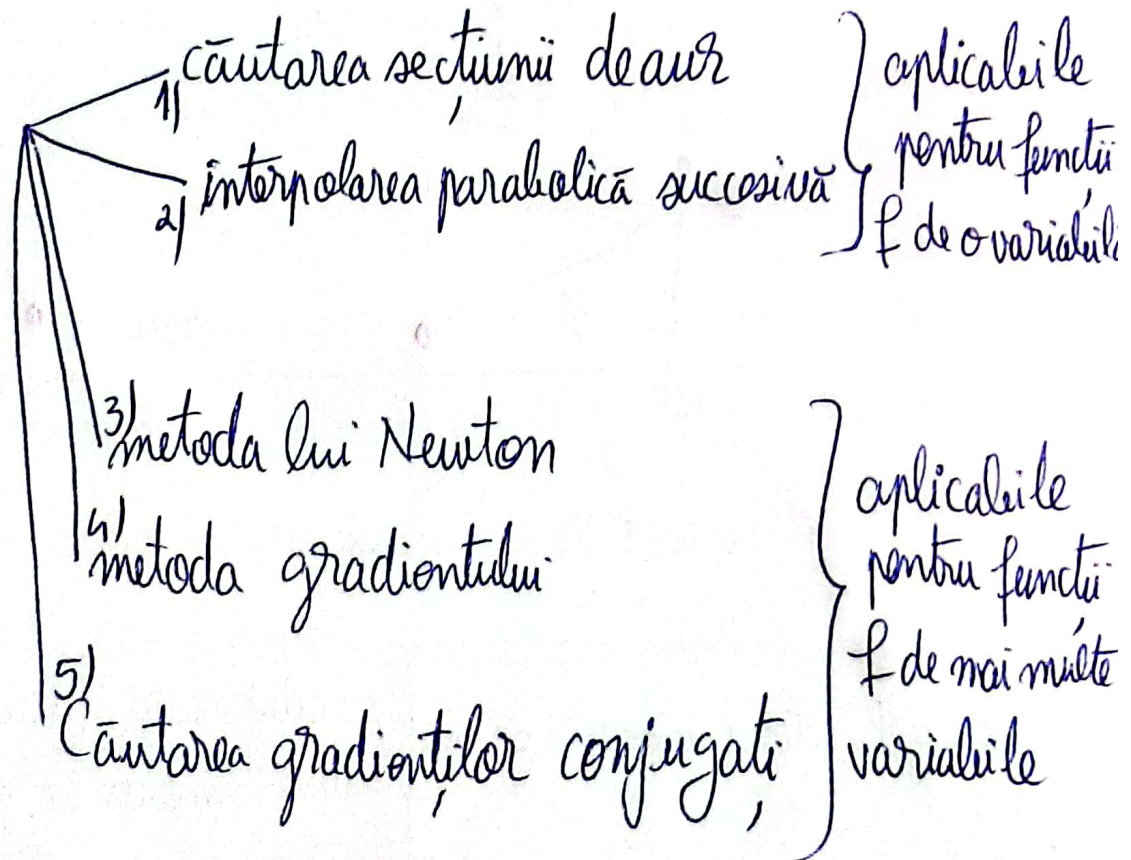 1) căutarea secțiunii de aur
2) interpolarea parabolică succesivă
aplicabile
pentru funcții
f de o variabil
3) metoda lui Newton
4) metoda gradientului
5) Căutarea gradienților conjugați
aplicabile
pentru funcții
f de mai multe
variabile